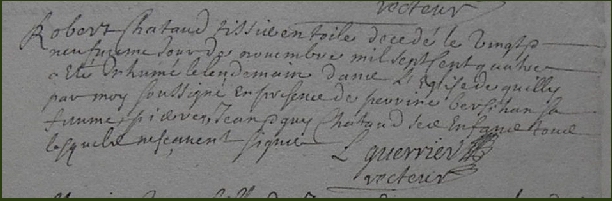 recteur
Robert Chataud tissie en toile decedé le vingt
neufvieme jour de novembre mil sept sent quatre
a eté Inhumé le lendemain dans L'eglise de quilly
par moy soussigné En presence de perrine bersihan sa
famme, pierre, Jean, guy Chataud ses Enfans tous
lesquels ne sçavent signer
L guerrier
recteur